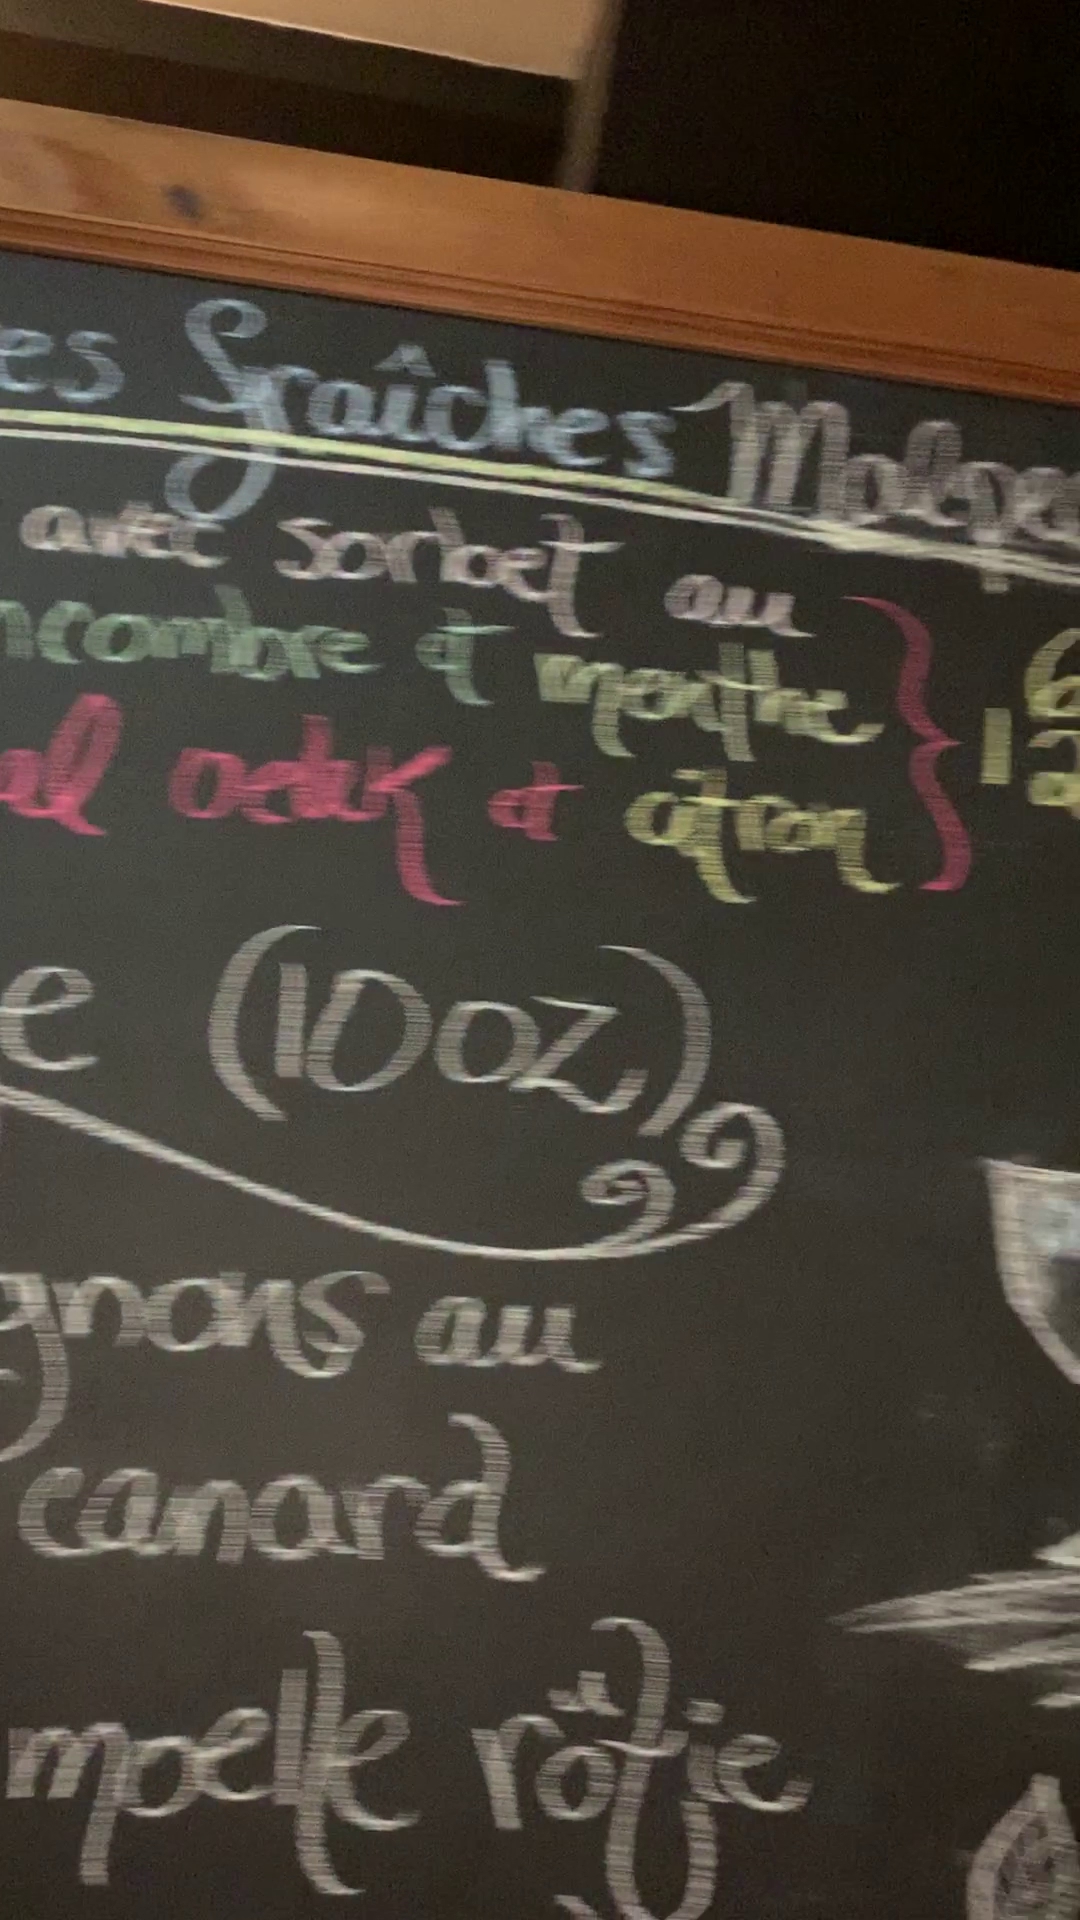 es fraîches Malpe
avec sorbet au
ncombre et menthe
et citron
e (10oz)
gnons au
canard
moelle rôtie